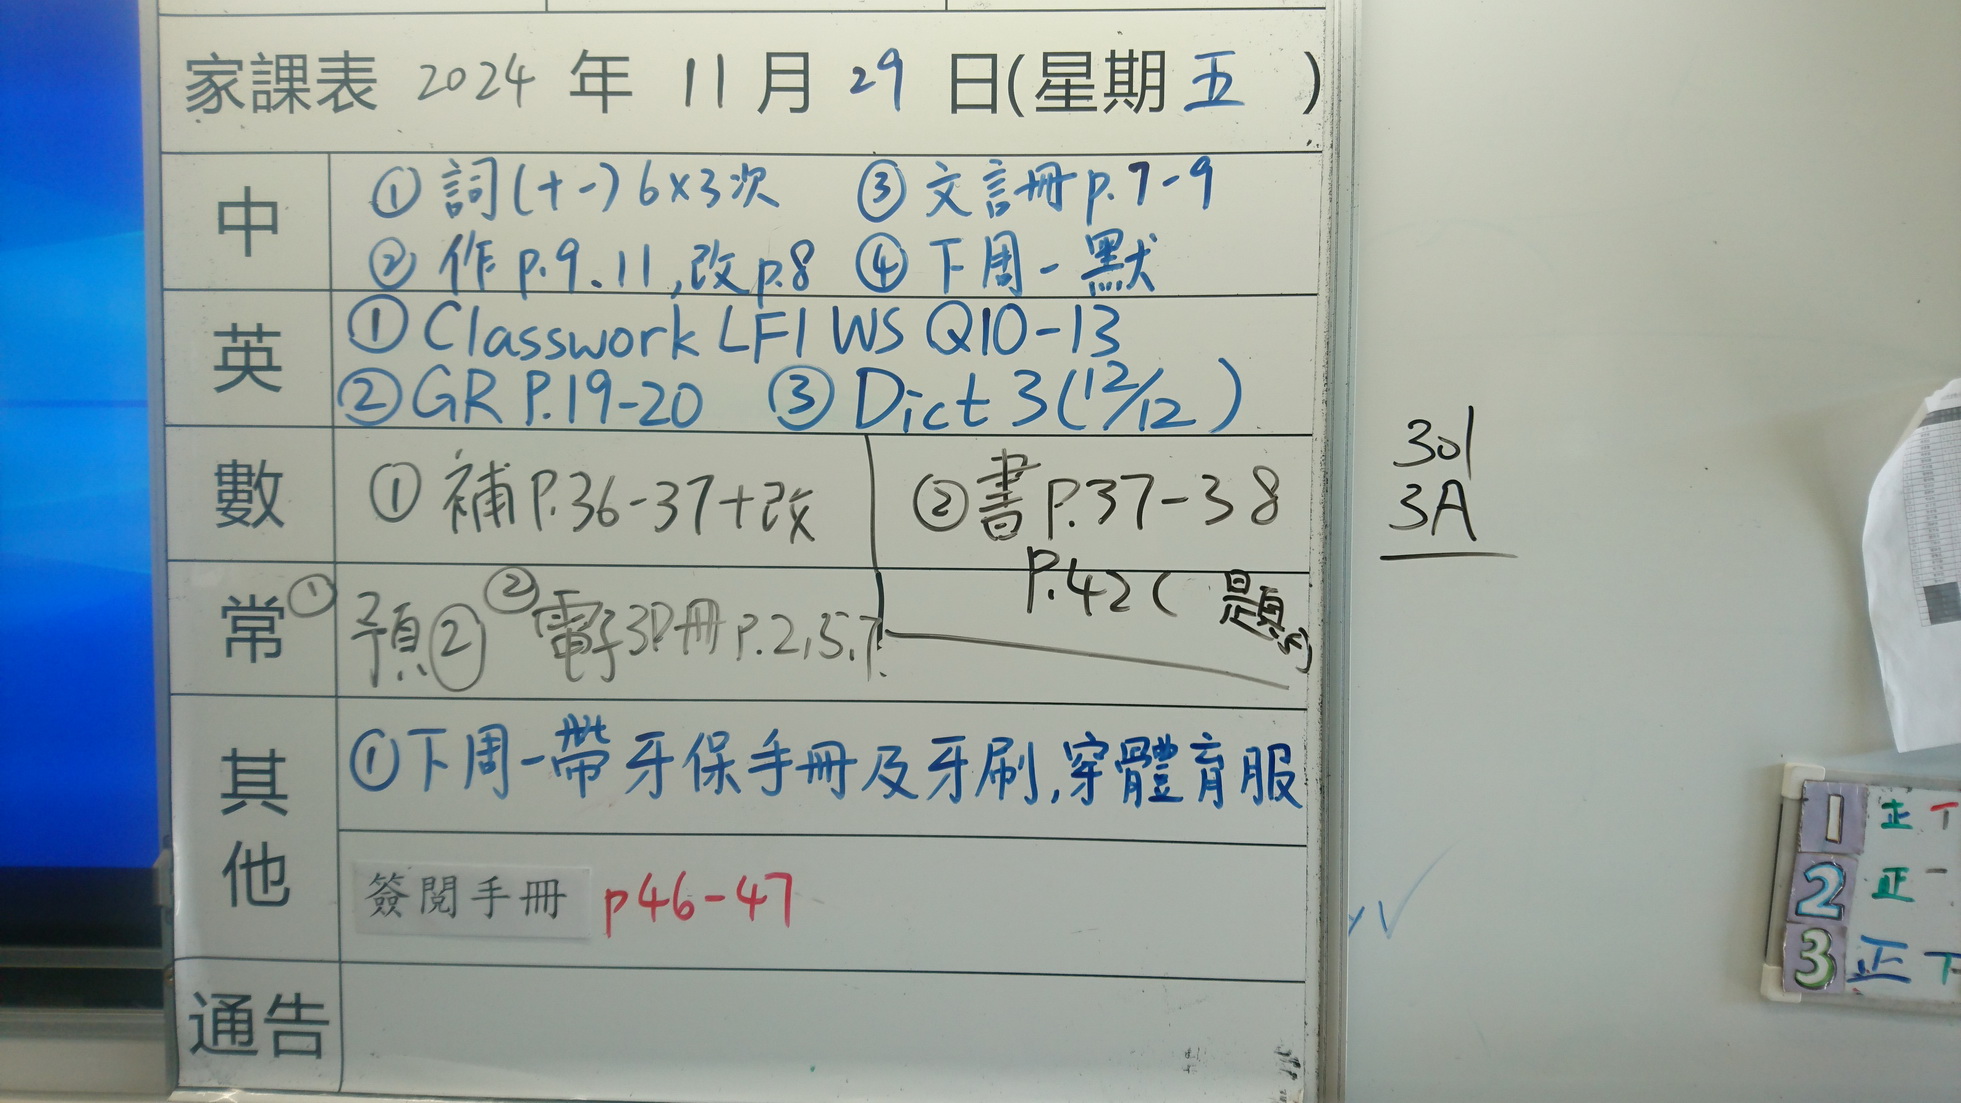 家課表 2024 年 11 月 29 日(星期 五 )
中
① 詞(十一) 6×3次 ③ 文言冊 p.7-9
② 作 p.9、11,改p.8 ④ 下周一默
英
① Classwork LF1 WS Q10-13
② GR P.19-20 ③ Dict 3 (12/12)
數
① 補 P.36-37+改 ② 書 P.37-38
P.42(題
常
① 預② ② 電子 冊 P.2,5,7
其他
① 下周一帶牙保手冊及牙刷,穿體育服
簽閱手冊 p46-47
通告
301
3A
1 正
2 正
3 正 下